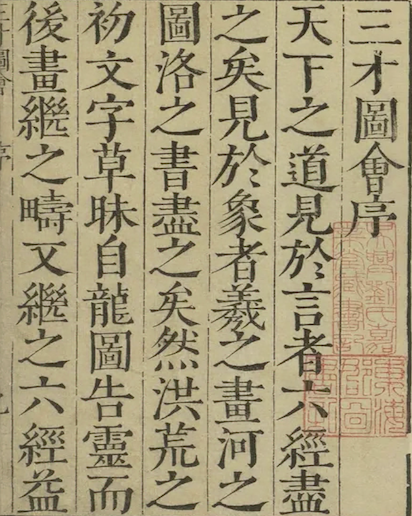 三才圖會序
天下之道見於言者六經盡
之矣見於象者羲之畫河之
圖洛之書盡之矣然洪荒之
初文字草昧自龍圖告靈而
後畫繼之疇又繼之六經益
三才圖會 序